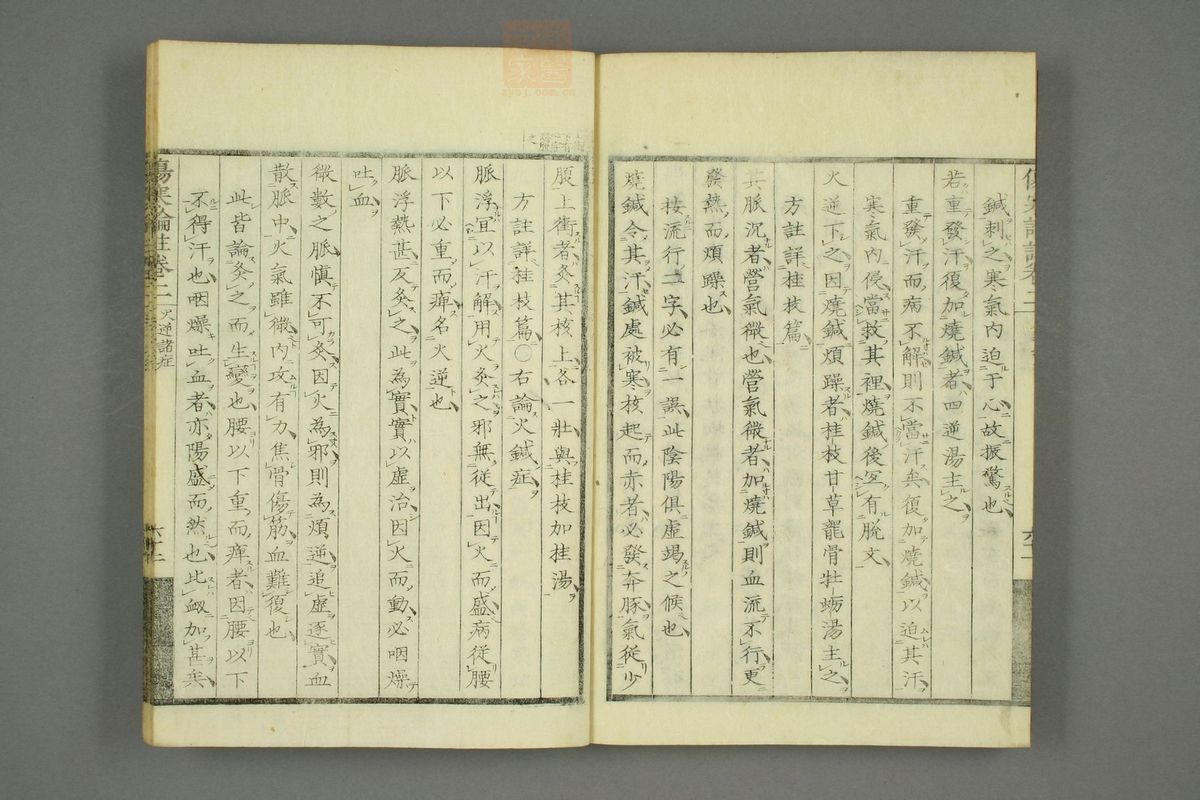 鍼刺之寒氣內迫于心故振驚也
若重發汗復加燒鍼者四逆湯主之
重發汗而病不解則不當汗矣復加燒鍼以迫其汗
寒氣內侵當救其裡燒鍼後宜有脫文
火逆下之因燒鍼煩躁者桂枝甘草龍骨牡蛎湯主之
方註詳桂枝篇
其脈沉者營氣微也營氣微者加燒鍼則血流不行更
發熱而煩躁也
按流行二字必有一誤此陰陽俱虛竭之候也
燒鍼令其汗鍼處被寒核起而赤者必發奔豚氣從少
腹上衝者灸其核上各一壯與桂枝加桂湯
方註詳桂枝篇〇右論火鍼症
脈浮宜以汗解用火灸之邪無從出因火而盛病從腰
以下必重而痺名火逆也
脈浮熱甚反灸之此為實實以虛治因火而動必咽燥
吐血
微數之脈慎不可灸因火為邪則為煩逆追虛逐實血
散脈中火氣雖微內攻有力焦骨傷筋血難復也
此皆論灸之而生變也腰以下重而痺者因腰以下
不得汗也咽燥吐血者亦陽盛而然也比衂加甚矣
傷寒論註卷二 火逆諸症